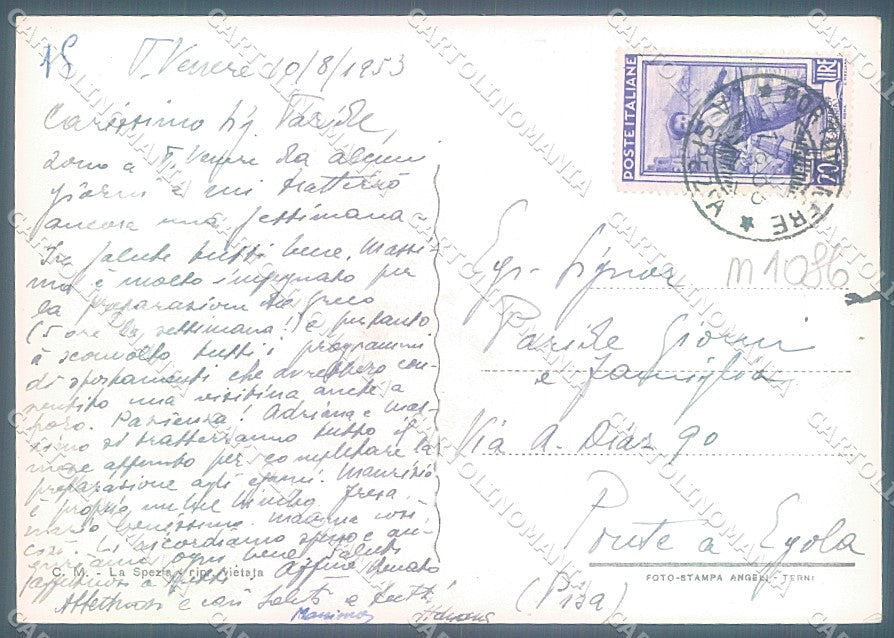 15
P. Venere 10/8/1953
Carissimo Sig. Paride,
sono a P. Venere da alcuni
giorni e mi tratterrò
ancora una settimana.
In salute tutti bene. Massi-
mo è molto impegnato per
la preparazione di greco
(5 ore la settimana!) e pertanto
è sconvolto tutti i programmi
di spostamenti che avrebbero con-
sentito una visitina anche a
Pazienza! Adriana e Mas-
simo si tratterranno tutto il
mese per completare la
preparazione agli esami. Maurizio
è proprio un bel bimbo.
benissimo. Mamma così
così. Vi ricordiamo spesso e au-
guriamo ogni bene. Saluti
affettuosi a tutti. Renato
Affettuosi e cari saluti a tutti
Massimo Adriana
C. M. - La Spezia - rip. vietata
POSTE ITALIANE
LIRE
20
PORTOVENERE
LA SPEZIA
m1086
Egr. Signor
Paride Giorni
e famiglia
Via A. Diaz 90
Ponte a Egola
(Pisa)
FOTO-STAMPA ANGELI - TERNI
CARTOLINOMANIA